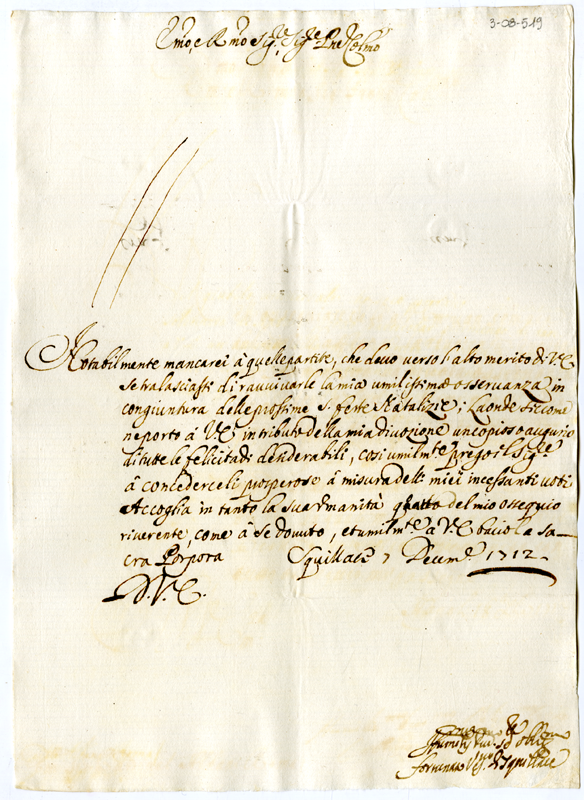 3-08-519
Emo, e Rmo Sig.e, Sig.e Pne Colmo
Notabilmente mancarei à quelle partite, che devo verso l'alto merito di V.E.
se tralasciassi di ravvivarle la mia umilissima osservanza in
congiuntura delle prossime S. feste Natalizie; Laonde siccome
ne porto à V.E. in tributo della mia divozione un copioso augurio
di tutte le felicità desiderabili, così umilmte prego il Sige
à concederceli prosperose à misura delli miei incessanti voti
Accoglia in tanto la sua umanità quatto del mio ossequio
riverente, come à se dovuto, et umilmte à V.E. bacio la sa-
cra Porpora Squillace 7 Decem.e 1712
D. V. E.
fortunato